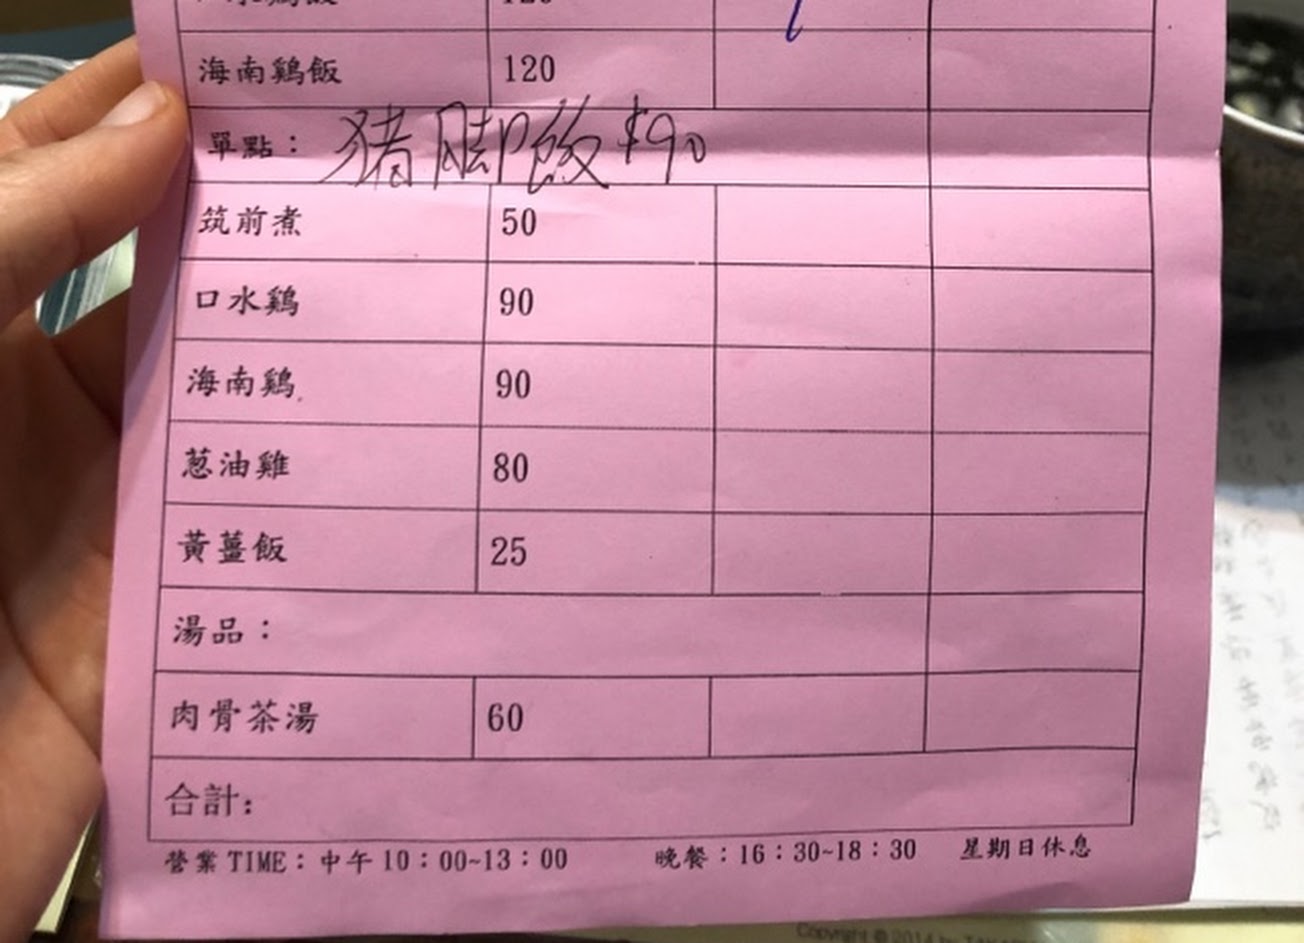 120
海南鷄飯 120
單點： 猪脚飯 $90
筑前煮 50
口水鷄 90
海南鷄 90
蔥油雞 80
黃薑飯 25
湯品：
肉骨茶湯 60
合計：
營業TIME：中午10：00~13：00 晚餐：16：30~18：30 星期日休息
Copyright © 2014 by